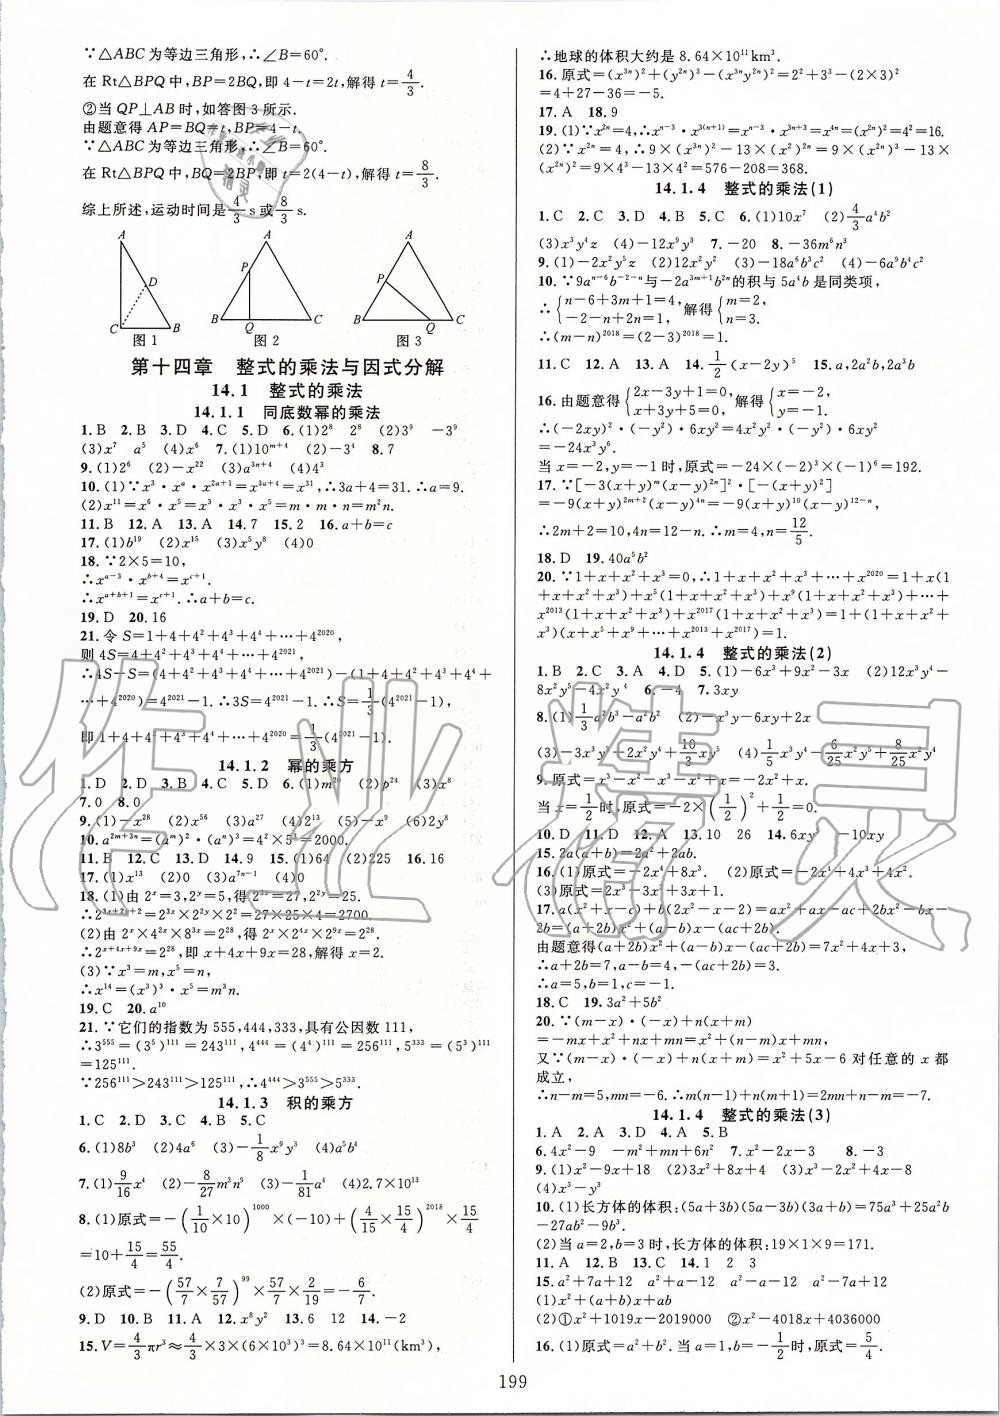 ∵△ABC为等边三角形,∴∠B=60°.
在Rt△BPQ中,BP=2BQ,即4-t=2t,解得t=4/3.
②当QP⊥AB时,如答图3所示.
由题意得AP=BQ=t,BP=4-t.
∵△ABC为等边三角形,∴∠B=60°.
在Rt△BPQ中,BQ=2BP,即t=2(4-t),解得t=8/3.
综上所述,运动时间是4/3 s或8/3 s.
A D C B 图1
A P Q C 图2
A P B Q C 图3
第十四章 整式的乘法与因式分解
14.1 整式的乘法
14.1.1 同底数幂的乘法
1.B 2.B 3.D 4.C 5.D 6.(1)2⁸ 2⁸ (2)3⁹ -3⁹
(3)x⁷ a⁵ (4)x⁶ 7.(1)10ᵐ⁺⁴ (2)-3⁴ 8.7
9.(1)2⁶ (2)-x²² (3)a³ⁿ⁺⁴ (4)4³
10.(1)∵x³·xᵃ·x²ᵃ⁺¹=x³ᵃ⁺⁴=x³¹,∴3a+4=31.∴a=9.
(2)x¹¹=x⁶·x⁵=x³·x³·x⁵=m·m·n=m²n.
11.B 12.A 13.A 14.7 15.2 16.a+b=c
17.(1)b¹⁹ (2)x¹⁵ (3)x⁵y⁸ (4)0
18.∵2×5=10,
∴xᵃ⁻³·xᵇ⁺⁴=xᶜ⁺¹.
∴xᵃ⁺ᵇ⁺¹=xᶜ⁺¹.∴a+b=c.
19.D 20.16
21.令S=1+4+4²+4³+4⁴+…+4²⁰²⁰,
则4S=4+4²+4³+4⁴+…+4²⁰²¹.
∴4S-S=(4+4²+4³+4⁴+…+4²⁰²¹)-(1+4+4²+4³+4⁴+
…+4²⁰²⁰)=4²⁰²¹-1.∴3S=4²⁰²¹-1.∴S=1/3(4²⁰²¹-1),
即1+4+4²+4³+4⁴+…+4²⁰²⁰=1/3(4²⁰²¹-1).
14.1.2 幂的乘方
1.D 2.D 3.B 4.C 5.D 6.(1)m²⁰ (2)b²⁴ (3)x⁸
7.0 8.0
9.(1)-x²⁸ (2)x⁵⁶ (4)2¹³ (5)-x⁹ (6)2y⁸
10.a²ᵐ⁺³ⁿ=(aᵐ)²·(aⁿ)³=4²×5³=2000.
11.B 12.C 13.D 14.9 15.(1)64 (2)225 16.16
17.(1)x¹³ (2)0 (3)a⁷ⁿ⁻¹ (4)0
18.(1)由2ˣ=3,2ʸ=5,得2³ˣ=27,2²ʸ=25.
∴2³ˣ⁺²ʸ⁺²=2³ˣ×2²ʸ×2²=27×25×4=2700.
(2)由2ˣ×4²ˣ×8³ˣ=2²⁸,得2ˣ×2⁴ˣ×2⁹ˣ=2²⁸,
∴2ˣ⁺⁴ˣ⁺⁹ˣ=2²⁸,即x+4x+9x=28,解得x=2.
(3)∵x³=m,x⁵=n,
∴x¹⁴=(x³)³·x⁵=m³n.
19.C 20.a¹⁰
21.∵它们的指数为555,444,333,具有公因数111,
∴3⁵⁵⁵=(3⁵)¹¹¹=243¹¹¹,4⁴⁴⁴=(4⁴)¹¹¹=256¹¹¹,5³³³=(5³)¹¹¹
=125¹¹¹.
∵256¹¹¹>243¹¹¹>125¹¹¹,∴4⁴⁴⁴>3⁵⁵⁵>5³³³.
14.1.3 积的乘方
1.C 2.D 3.C 4.B 5.C
6.(1)8b³ (2)4a⁶ (3)-1/8x⁹y³ (4)x²y⁴
7.(1)9/16x⁴ (2)-8/27m³n⁵ (3)-1/81a⁴ (4)2.7×10¹³
8.(1)原式=-(1/10×10)¹⁰⁰⁰×(-10)+(4/15×15/4)²⁰¹⁸×15/4
=10+15/4=55/4.
(2)原式=-(57/7×7/57)⁹⁹×57/7×2/19=-6/7.
9.D 10.B 11.A 12.x⁸y² 13.6 12 14.-2
15.V=4/3πr³≈4/3×3×(6×10³)³=8.64×10¹¹(km³),
∴地球的体积大约是8.64×10¹¹km³.
16.原式=(x³ⁿ)²+(y²ⁿ)³-(x³ⁿy²ⁿ)²=2²+3³-(2×3)²
=4+27-36=-5.
17.A 18.9
19.(1)∵x²ⁿ=4,∴xⁿ⁻³·x³⁽ⁿ⁺¹⁾=xⁿ⁻³·x³ⁿ⁺³=x⁴ⁿ=(x²ⁿ)²=4²=16.
(2)∵x²ⁿ=4,∴9(x³ⁿ)²-13(x²)²ⁿ=9(x²ⁿ)³-13×
(x²ⁿ)²=9×4³-13×4²=576-208=368.
14.1.4 整式的乘法(1)
1.C 2.C 3.D 4.B 5.C 6.(1)10x⁷ (2)4/3a⁴b²
(3)x³y⁴z (4)-12x⁹y³ 7.-20 8.-36m⁶n³
9.(1)-2x²y⁵z (2)12x²y² (3)-18a⁶b³c² (4)-6a⁹b⁴c²
10.∵9aⁿ⁻⁶b⁻²⁻ⁿ与-2a³ᵐ⁺¹b²ⁿ的积与5a⁴b是同类项,
∴{n-6+3m+1=4, -2-n+2n=1, 解得{m=2, n=3.
∴(m-n)²⁰¹⁸=(2-3)²⁰¹⁸=1.
11.C 12.A 13.A 14.1/2(x-2y)⁵ 15.a,2a²b,2a³b
16.由题意得{2x-3y+1=0, x+3y+5=0, 解得{x=-2, y=-1.
∴(-2xy)²·(-y²)·6xy²=4x²y²·(-y²)·6xy²
=-24x³y⁶.
当x=-2,y=-1时,原式=-24×(-2)³×(-1)⁶=192.
17.∵[-3(x+y)ᵐ(x-y)²ⁿ]²·[-(x+y)²]
=-9(x+y)²ᵐ⁺²(x-y)⁴ⁿ=-9(x+y)¹⁰(x-y)¹²⁻ⁿ,
∴2m+2=10,4n=12-n.∴m=4,n=12/5.
18.D 19.40a⁵b²
20.∵1+x+x²+x³=0,∴1+x+x²+x³+…+x²⁰²⁰=1+x(1
+x+x²+x³)+x⁵(1+x+x²+x³)+x⁹(1+x+x²+x³)+…+
x²⁰¹³(1+x+x²+x³)+x²⁰¹⁷(1+x+x²+x³)=1+(1+x+x²+
x³)(x+x⁵+x⁹+…+x²⁰¹³+x²⁰¹⁷)=1.
14.1.4 整式的乘法(2)
1.B 2.C 3.D 4.D 5.(1)-6x³+9x²-3x (2)12x³y⁴-
8x²y⁵-4x²y⁴ 6.-4 7.3xy
8.(1)1/3a²b³-a²b² (2)-x²y-6xy+2x
(3)-3x³y³-2x²y⁴+10/3xy⁵ (4)1/5x³y-6/25x²y⁵+8/25x²y⁴
9.原式=x²-x³-x²+x³-x²+x=-2x²+x.
当x=1/2时,原式=-2×(1/2)²+1/2=0.
10.D 11.D 12.A 13.10 26 14.6xy -10xy
15.2a(a+b)=2a²+2ab.
16.(1)原式=-2x⁴+8x³. (2)原式=-2x⁴+4x³+4x².
(3)原式=2x³-3x²+3x+1.
17.a(x²+x-c)+b(2x²-x-2)=ax²+ax-ac+2bx²-bx-
2b=(a+2b)x²+(a-b)x-(ac+2b).
由题意得(a+2b)x²+(a-b)x-(ac+2b)=7x²+4x+3,
∴a+2b=7,a-b=4,-(ac+2b)=3.
∴a=5,b=1,c=-1.
18.C 19.3a²+5b²
20.∵(m-x)·(-x)+n(x+m)
=-mx+x²+nx+mn=x²+(n-m)x+mn,
又∵(m-x)·(-x)+n(x+m)=x²+5x-6对任意的x都
成立,
∴n-m=5,mn=-6.∴m(n-1)+n(m+1)=2mn+n-m=-7.
14.1.4 整式的乘法(3)
1.A 2.A 3.D 4.A 5.B
6.4x²-9 -m²+mn+6n² 7.x²-2x-3 8.-3
9.(1)x²-9x+18 (2)3x²+8x+4 (3)-x²+4x-8
(4)x³-y³
10.(1)长方体的体积:(5a+3b)(5a-3b)(3a+b)=75a³+25a²b
-27ab²-9b³.
(2)当a=2,b=3时,长方体的体积:19×1×9=171.
11.A 12.B 13.C 14.1 2 3
15.a²+7a+12 a²+a-12 a²-a-12 a²-7a+12
(1)x²+(a+b)x+ab
(2)①x²+1019x-2019000 ②x²-4018x+4036000
16.(1)原式=2x²-x+1/4.当x=-1/2时,原式=5/4.
199
作业精灵